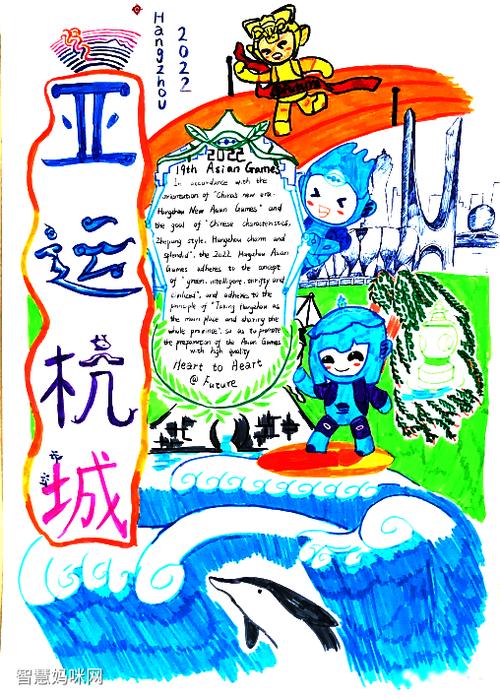 Hangzhou
2022
亚
运
杭
城
2022
19th Asian Games
In accordance with the
orientation of "China's new era·
Hangzhou New Asian Games" and
the goal of "Chinese characteristics,
Zhejiang style, Hangzhou charm and
splendid", the 2022 Hangzhou Asian
Games adheres to the concept
of "green, intelligent, thrifty and
civilized", and adheres to the
principle of "Taking Hangzhou as
the main place and sharing the
whole province", so as to promote
the preparation of the Asian Games
with high quality
Heart to Heart
@ Future
智慧妈咪网